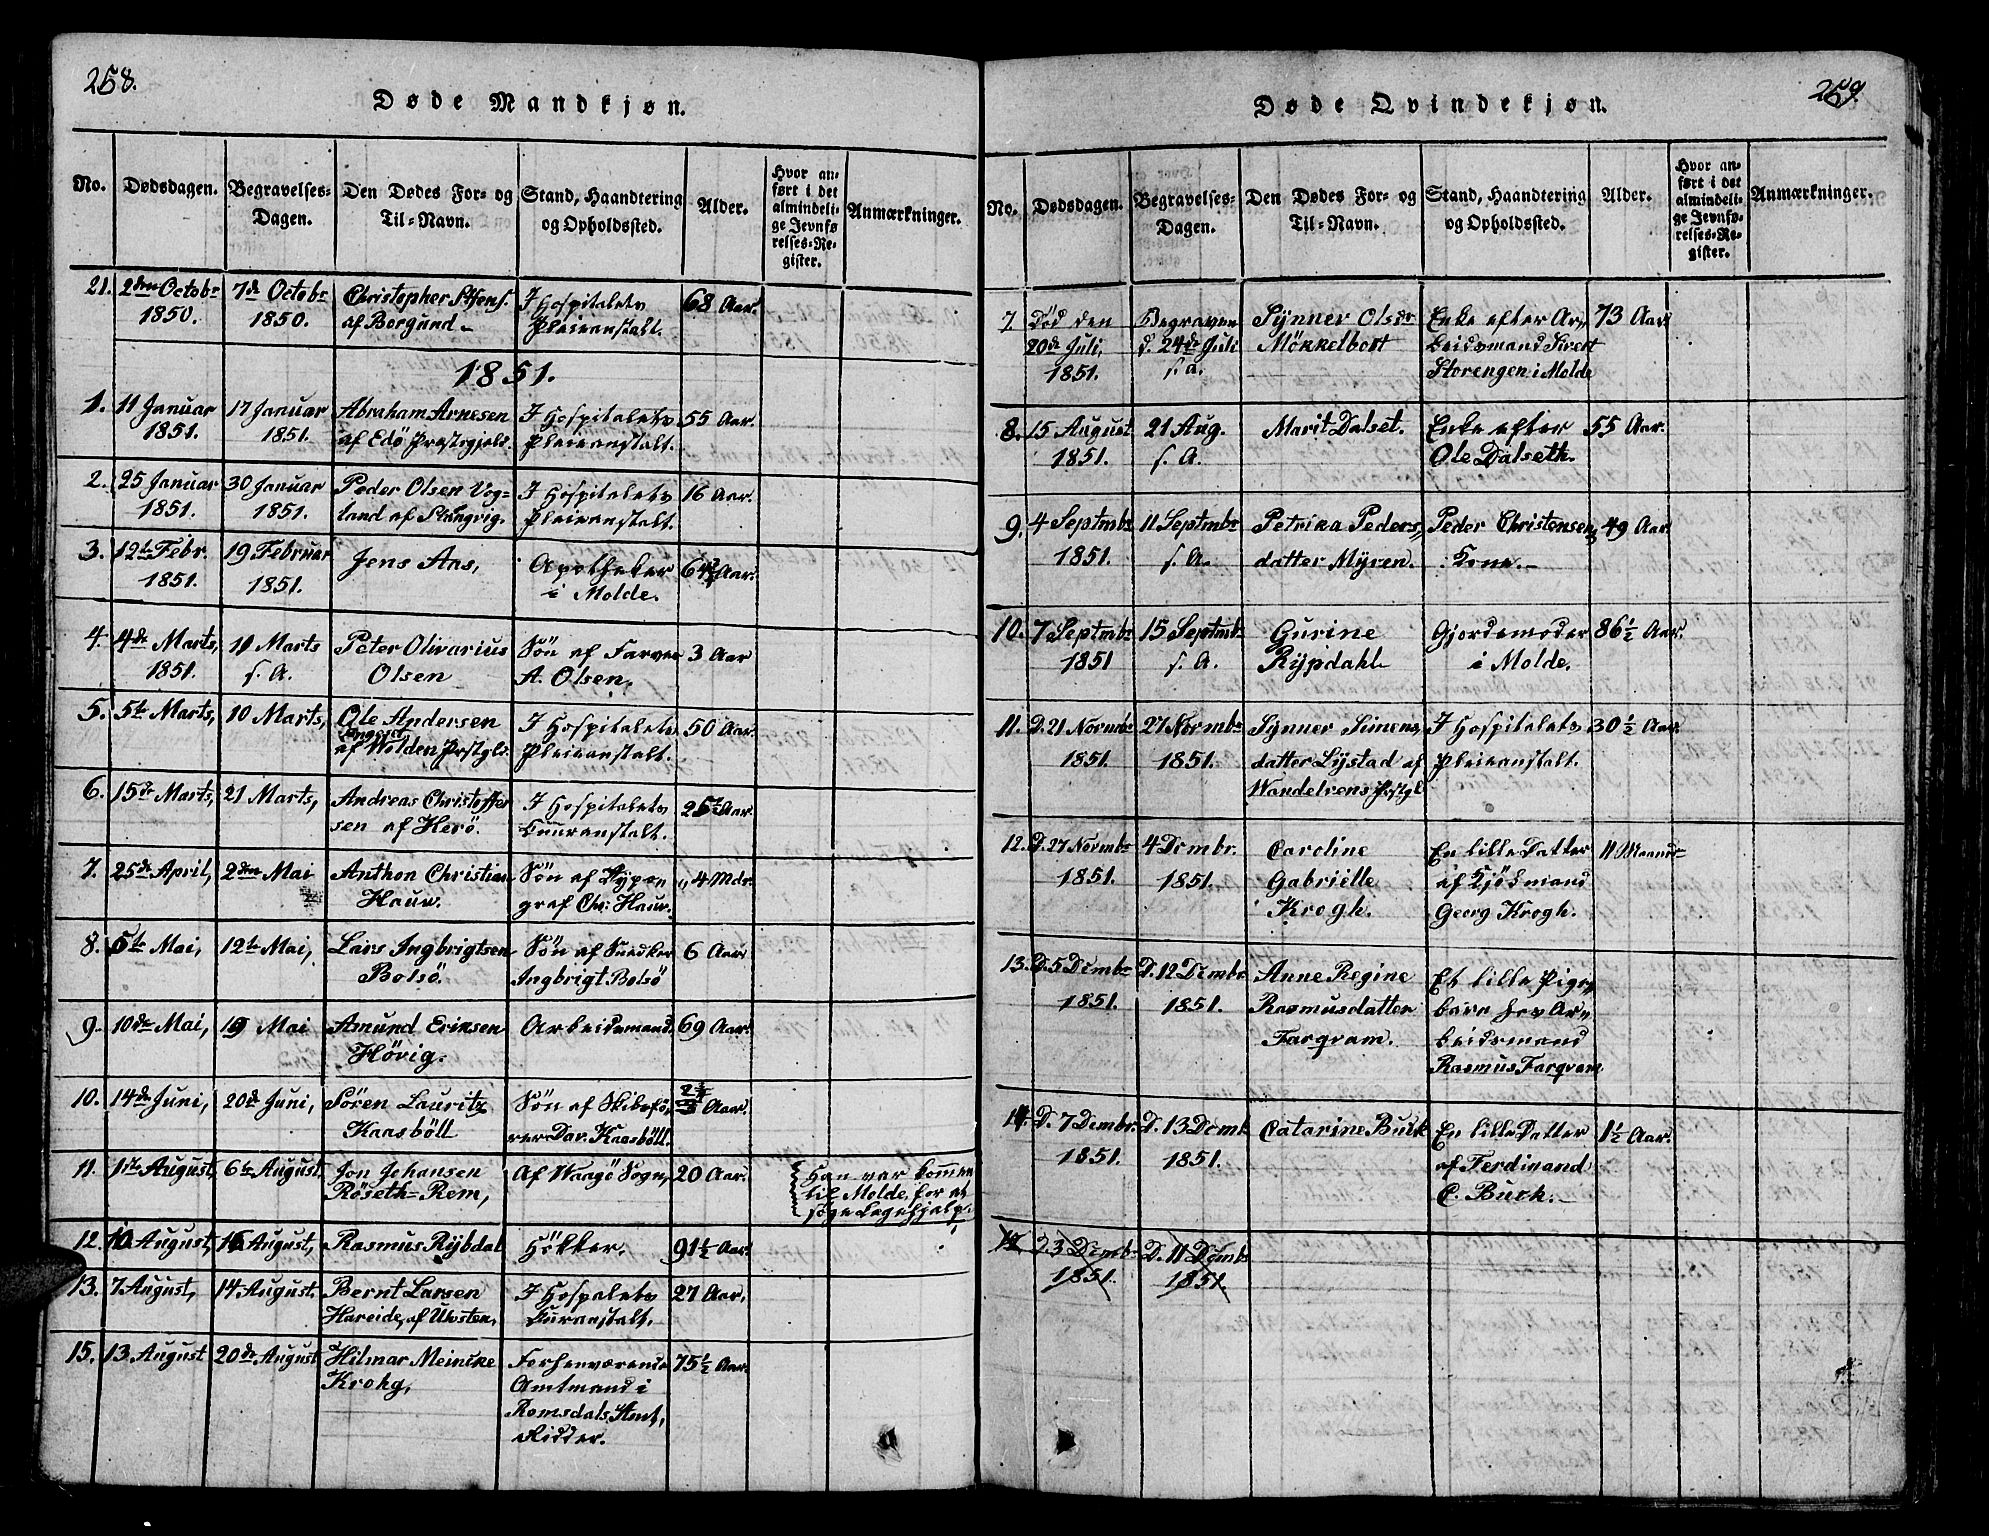 258.
Døde Mandkjøn.
No. Dødsdagen. Begravelses-Dagen. Den Dødes For- og Til-Navn. Stand, Haandtering og Opholdssted. Alder. Hvor anført i det almindelige Jevnførelses-Register. Anmærkninger.
21. 2den Octobr 7de Octobr Christopher Steens. I Hospitalets 68 Aar.
1850. 1850. af Borgund Pleieanstalt.
1851.
1. 11 Januar 17 Januar Abraham Arnesen I Hospitalets 55 Aar.
1851. 1851. af Edö Præstegjeld. Pleieanstalt.
2. 25 Januar 30 Januar Peder Olsen Vog= I Hospitalets 16 Aar.
1851. 1851. land af Stangvig. Pleieanstalt.
3. 12te Febr. 19 Februar Jens Aas, Apotheker 64 Aar.
1851. 1851. i Molde.
4. 4de Marts, 11 Marts Peter Olivarius Sön af Farver 3 Aar
1851. s. A. Olsen A. Olsen.
5. 5te Marts, 10 Marts, Ole Andersen I Hospitalets 50 Aar.
af Volden Prstgld. Pleieanstalt.
6. 15de Marts, 21 Marts, Andreas Christoffer I Hospitalets 25 Aar.
sen af Herö. Cuuranstalt.
7. 25de April, 2den Mai Anthon Christian Sön af Typo= 4 Mdr.
Hauw. graf Chr. Hauw.
8. 5te Mai, 12te Mai, Lars Ingbrigtsen Sön af Snedker 6 Aar
Bolsö. Ingbrigt Bolsö
9. 10de Mai, 19 Mai Amund Eriksen Arbeidsmand. 69 Aar.
Hövig.
10. 14de Juni, 20de Juni, Sören Lauritz Sön af Skibsfö, Aar.
Kaasböll rer Dav. Kaasböll.
11. 1ste August, 6te August. Jon Johansen Af Vaagö Sogn, 20 Aar. Han var kommen
Röseth=Rem, til Molde, for at
søge Lægehjælp.
12. 10 August, 16 August, Rasmus Rypdal Hökker. 91½ Aar.
13. 7 August, 14 August. Bernt Larsen I Hospalets 27 Aar.
Hareide, af Ulvsten, Curanstalt.
15. 13. August 20de August Hilmar Meincke Forhenværende 75½ Aar.
Krohg, Amtmand i
Romsdals Amt,
Ridder.
259.
Døde Qvindekjøn.
No. Dødsdagen. Begravelses-Dagen. Den Dødes For- og Til-Navn. Stand, Haandtering og Opholdssted. Alder. Hvor anført i det almindelige Jevnførelses-Register. Anmærkninger.
7. Död den Begraven Synner Olsdr Enke efter Ar= 73 Aar
20de Juli, d. 24de Juli Mökkelbost beidsmand Sivert
1851. s. a. Storengen i Molde
8. 15 August 21 Aug. Marit Dalset. Enke efter 55 Aar.
1851. s. A. Ole Dalseth.
9. 4 Septmbr 11 Septmbr Petrika Peders= Peder Christensens 49 Aar
1851. s. A. datter Myren. Kone.
10. 7 Septmbr 15 Septmbr Gurine Gjordemoder 86½ Aar.
1851 s. A. Rypdahl i Molde.
11. D. 21 Novmbr 27 Novmbr Synner Simens, I Hospitalets 30½ Aar.
1851. 1851. datter Lystad af Pleieanstalt.
Vandelvens Prstgl
12. D. 27 Novmbr 4 Dcmbr. Caroline En lille Datter 11 Maandr
1851. 1851. Gabrielle af Sjömand
Krogh. Georg Krogh.
13. D. 5 Dcmbr D. 12 Dcmbr Anne Regine Et lille Pige=
1851. 1851. Rasmusdatter barn for Ar=
Farqvam. beidsmand
Rasmus Farqvam
14. D. 7 Dcmbr. D. 13 Dcmbr Catarine Buck En lille Datter 1½ Aar.
1851. 1851. af Ferdinand
C. Buck.
D. 3 Dcmbr D. 11 Dcmbr
1851. 1851.